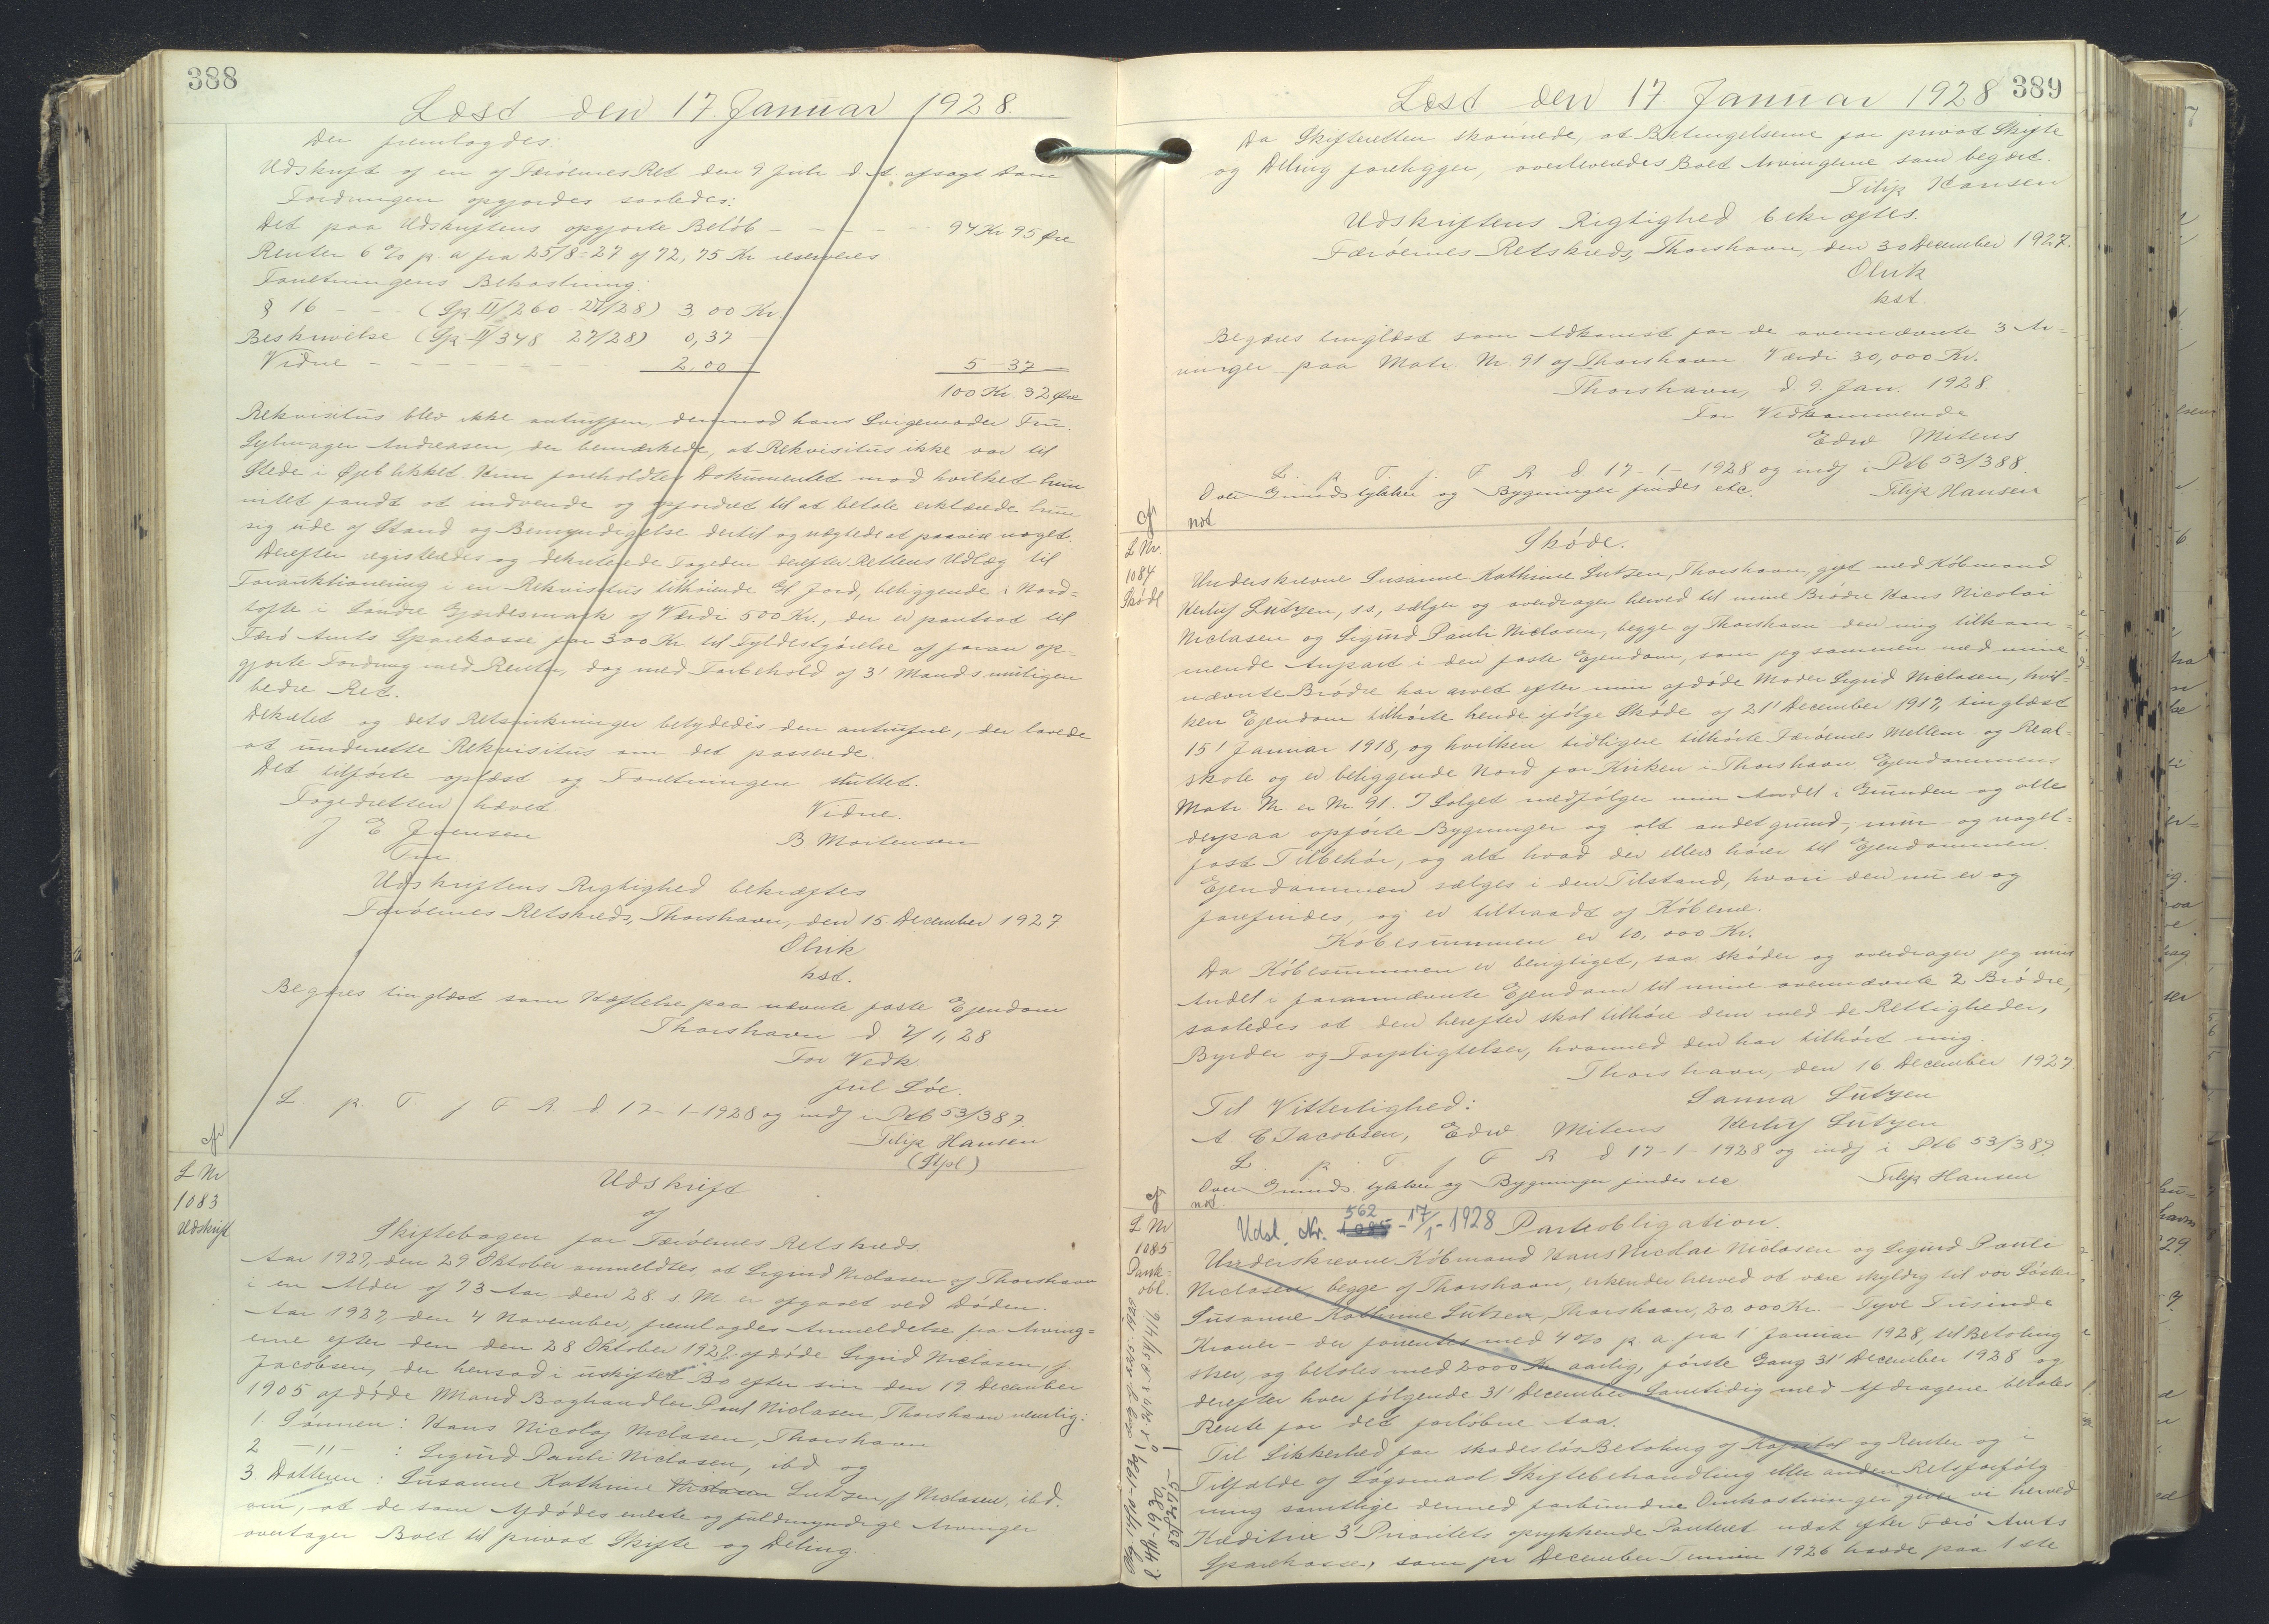 388
Læst den 17. Januar 1928.
Der fremlagdes:
Udskrift af en af Færöernes Ret den 9 Juli d A afsagt Dom
Fordringen opgjordes saaledes:
Det paa Udskriftens opgjorte Belöb - - - - - 94 Kr 95 Øre
Renter 6 % p. a fra 25/8-27 af 72,75 Kr reserveres.
Forretningens Bekostning:
§ 16 - - - (Gp II/260 27/28) 3,00 Kr.
Beskrivelse (Gp II/348 27/28) 0,37
Vidne - - - - - - - 2,00 5-37
100 Kr. 32 Øre
Rekvisitus blev ikke antruffen, derimod hans Svigermoder Fru.
Andreasen, der bemærkede, at Rekvisitus ikke var til
Stede i Øjeblikket. Hun foreholdtes Dokumentet mod hvilket hun
intet fandt at indvende og opfordret til at betale erklærede hun
sig ude af Stand og Bemyndigelse dertil og nægtede at paavise noget.
Derefter registreredes og dekreterede Fogeden derefter Rettens Udlæg til
Forauktionering i en Rekvisitus tilhörende Jord, beliggende i Nord=
tofte i Söndre Gjærdesmark af Værdi 500 Kr., der er pantsat til
Færö Amts Sparekasse for 300 Kr til Fyldestgörelse af foran op-
gjorte Fordring med Renter, dog med Forbehold af 3' Mands muligen
bedre Ret.
Dekretet og dets Retsvirkninger betydedes den antrufne, der lovede
at underrette Rekvisitus om det passerede.
Det tilförte oplæst og Forretningen sluttet.
Fogedretten hævet.
Vidne.
J E Joensen
B Mortensen
Fm
Udskriftens Rigtighed bekræftes
Færöernes Retskreds, Thorshavn, den 15. December 1927
Olrik
kst.
Begæres tinglæst som Hæftelse paa nævnte faste Ejendom
Thorshavn d 7/1, 28
For Vedk.
Jul Söe.
L. p. T. f F R d 17-1-1928 og indf i Ptb 53/387.
Filip Hansen
(Stpl)
cfr
L Nr
1083
Udskrift
Udskrift
af
Skiftebogen for Færöernes Retskreds.
Aar 1927, den 29 Oktober anmeldtes, at Sigrid Niclasen af Thorshavn
i en Alder af 73 Aar, den 28. s M er afgaaet ved Döden.
Aar 1927, den 4 November, fremlagdes Anmeldelse fra Arving=
erne efter den den 28 Oktober 1927 afdöde Sigrid Niclasen, f
Jacobsen, der hensad i uskiftet Bo efter sin den 19 December
1905 afdöde Mand Boghandler Poul Niclasen, Thorshavn nemlig:
1. Sönnen: Hans Nicolaj Niclasen, Thorshavn
2 -"- : Sigurd Pauli Niclasen, ibd og
3. Datteren: Susanne Kathrine Niclasen Lutzen, f Niclasen, ibd.
om, at de som Afdödes eneste og fuldmyndige Arvinger
overtager Boet til privat Skifte og Deling.
389
Læst den 17 Januar 1928
Da Skifteretten skönnede, at Betingelserne for privat Skifte
og Deling foreligger, overleveredes Boet Arvingerne som begært.
Filip Hansen
Udskriftens Rigtighed bekræftes.
Færöernes Retskreds, Thorshavn, den 30 December 1927.
Olrik
kst.
Begæres tinglæst som Adkomst for de ovennævnte 3 Ar=
vinger paa Matr. Nr. 91 af Thorshavn. Værdi 30,000 Kr.
Thorshavn, d 9. Jan. 1928
For Vedkommende
Edw Mitens
L. p T. f. F R d 17-1-1928 og indf i Ptb 53/388.
Over Grundstykker og Bygninger findes etc. Filip Hansen
cfr
not
L Nr.
1084
Sködl
Sköde.
Underskrevne Susanne Kathrine Lutzen, Thorshavn, gift med Köbmand
Kerluf Lützen, s.s., sælger og overdrager herved til mine Brödre Hans Nicolai
Niclasen og Sigurd Pauli Niclasen, begge af Thorshavn den mig tilkom=
mende Anpart i den faste Ejendom, som jeg sammen med mine
nævnte Brödre har arvet efter min afdöde Moder Sigrid Niclasen, hvil=
ken Ejendom tilhörte hende ifölge Sköde af 21' December 1917, tinglæst
15' Januar 1918, og hvilken tidligere tilhörte Færöernes Mellem- og Real-
skole og er beliggende Nord for Kirken i Thorshavn. Ejendommens
Matr. Nr. er Nr. 91. I Salget medfölger min Andel i Grunden og alle
derpaa opförte Bygninger og alt andet grund-, mur- og nagel=
fast Tilbehör, og alt hvad der ellers hörer til Ejendommen.
Ejendommen sælges i den Tilstand, hvori den nu er og
forefindes, og er tiltraadt af Köberne.
Köbesummen er 10,000 Kr.
Da Köbesummen er berigtiget, saa sköder og overdrager jeg min
Andel i forannævnte Ejendom til mine ovennævnte 2 Brödre,
saaledes at den herefter skal tilhöre dem med de Rettigheder,
Byrder og Forpligtelser, hvormed den har tilhört mig.
Thorshavn, den 16 December 1927
Til Vitterlighed: Sanna Lutzen
A. C Jacobsen, Edw. Mitens Kerluf Lutzen
L. p. T. f F R d 17-1-1928 og indf i Ptb 53/389
Over Grundstykker og Bygninger findes etc Filip Hansen
cfr
not.
L Nr
1085
Pant-
obl.
Udsl. Nr. 1085 562 - 17/1-1928 Panteobligation.
Underskrevne Köbmand Hans Nicolai Niclasen og Sigurd Pauli
Niclasen, begge af Thorshavn, erkender herved at være skyldig til vor Söster
Susanne Kathrine Lutzen, Thorshavn, 20,000 Kr. - Tyve Tusinde
Kroner - der forrentes med 4 o/o p. a. fra 1' Januar 1928, til Betaling
sker, og betales med 2000 Kr aarlig, förste Gang 31' December 1928 og
derefter hver fölgende 31' December. Samtidig med Afdragene betales
Rente for det forlöbne Aar.
Til Sikkerhed for skadeslös Betaling af Kapital og Renter og i
Tilfælde af Sögsmaal, Skiftebehandling eller anden Retsforfölg-
ning samtlige dermed forbundne Omkostninger giver vi herved
Kreditrix 3' Prioritets oprykkende Panteret næst efter Færö Amts
Sparekasse, som pr December Termin 1926 havde paa 1ste